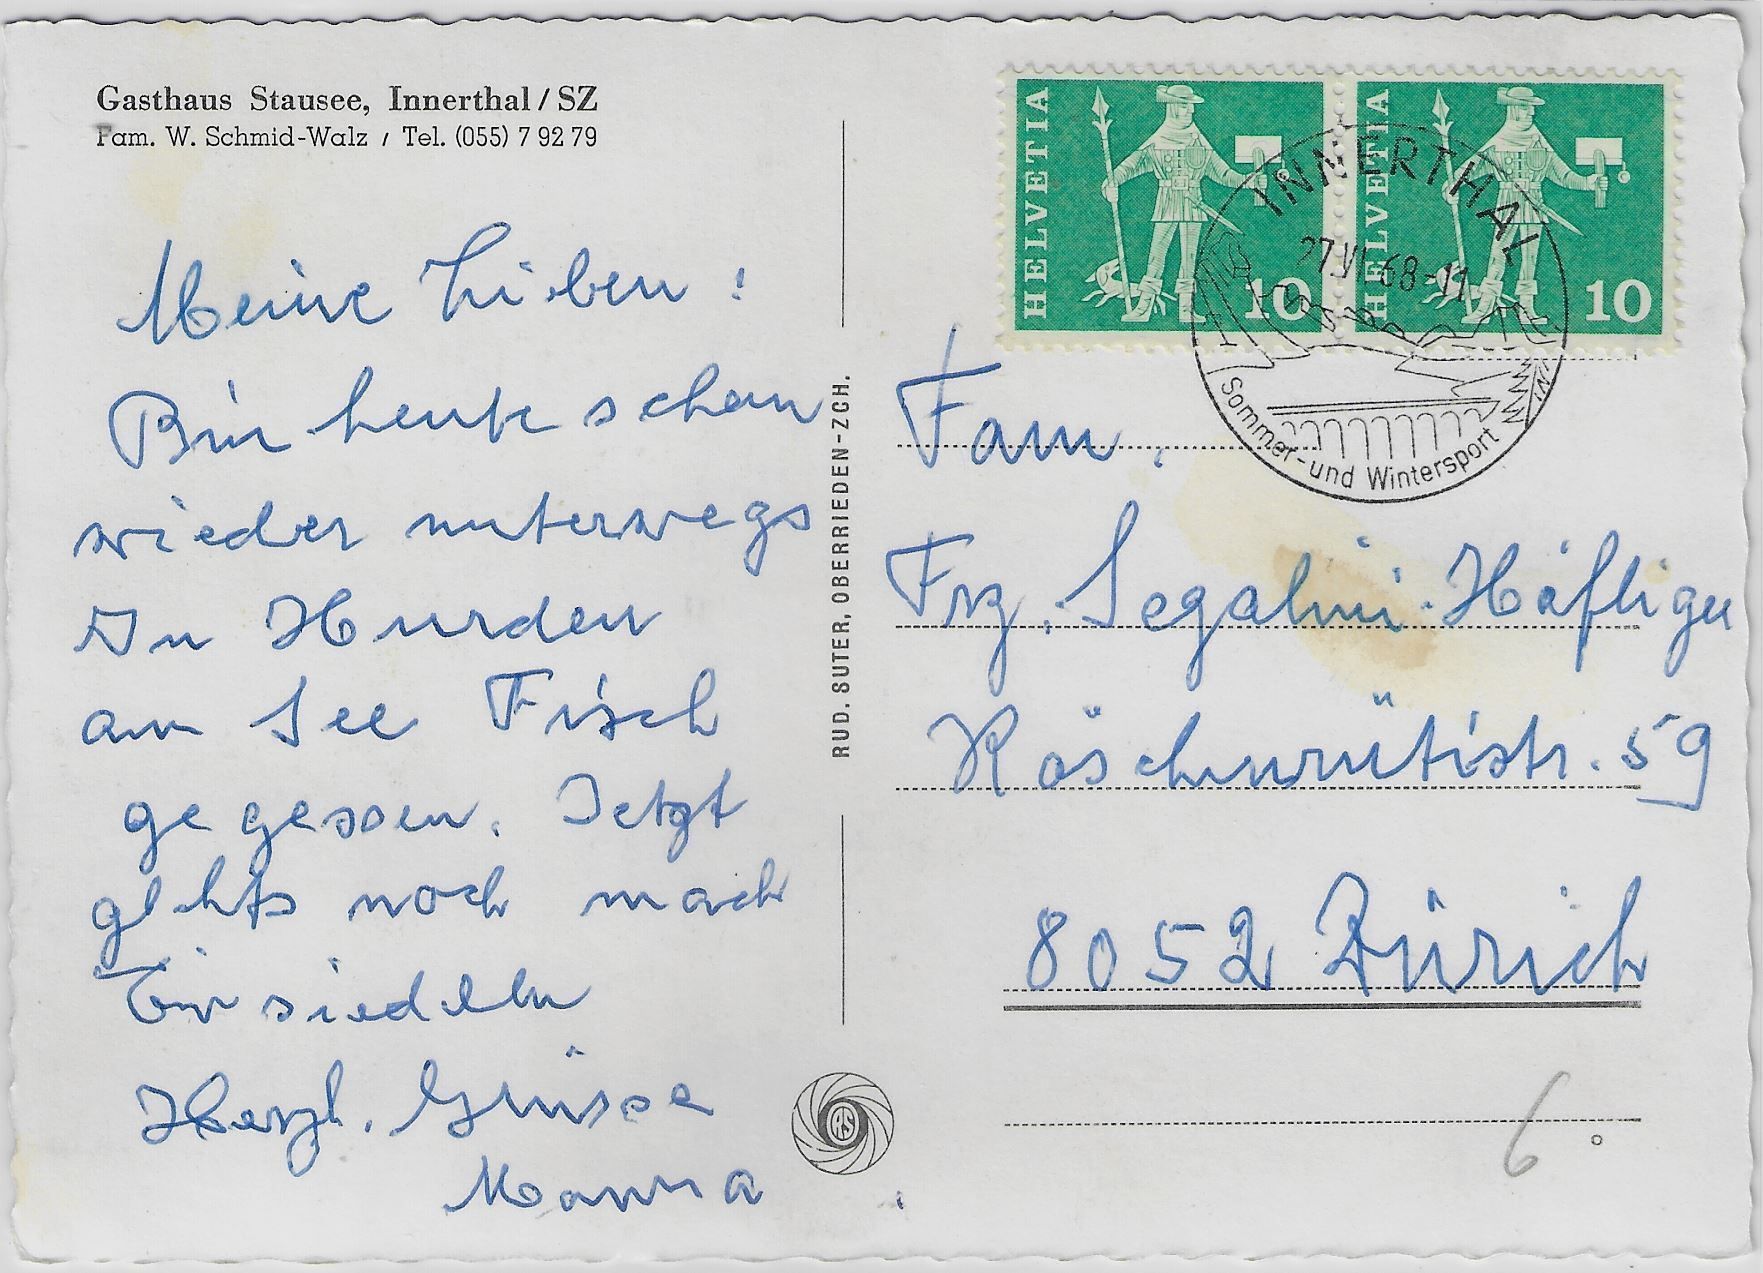 Gasthaus Stausee, Innerthal / SZ
Fam. W. Schmid-Walz / Tel. (055) 7 92 79
Meine Lieben!
Bin heute schon
wieder unterwegs
In Hurden
am See Fisch
gegessen. Jetzt
gehts noch nach
Einsiedeln
Herzl. Grüsse
Mamma
RUD. SUTER, OBERRIEDEN-ZCH.
RS
HELVETIA
10
HELVETIA
10
INNERTHAL
27.VI.68-11
Sommer- und Wintersport
Fam.
Frz. Segalini-Häfliger
Köschenrütistr. 59
8052 Zürich
6